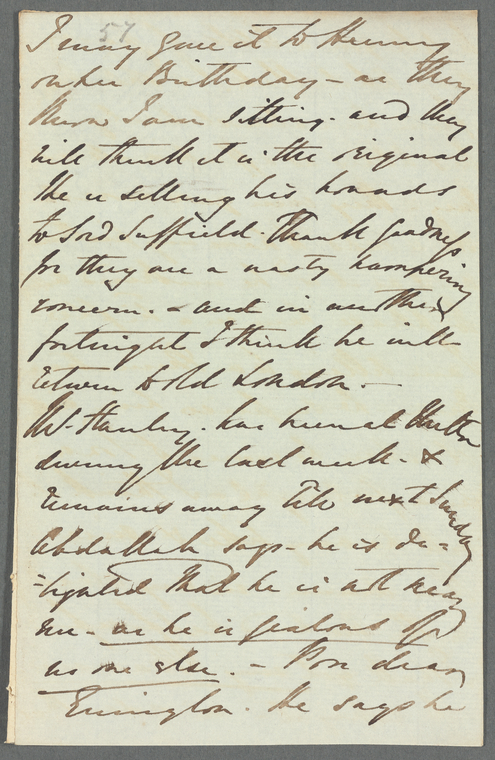 57
I may give it to Henry
on her Birthday - as they
know I am sitting - and they
will think it is the original
He is selling his hounds
to Lord Suffield. Thank goodness
for they are a nasty hampering
concern. - and in another
fortnight I think he will
return to old London. -
Mr. Stanley has been at
during the last week - &
remains away till next Sunday
Abdallah says - he is de=
=lighted that he is not near
me - as he is jealous of
no one else. - Poor dear
Errington. He says he